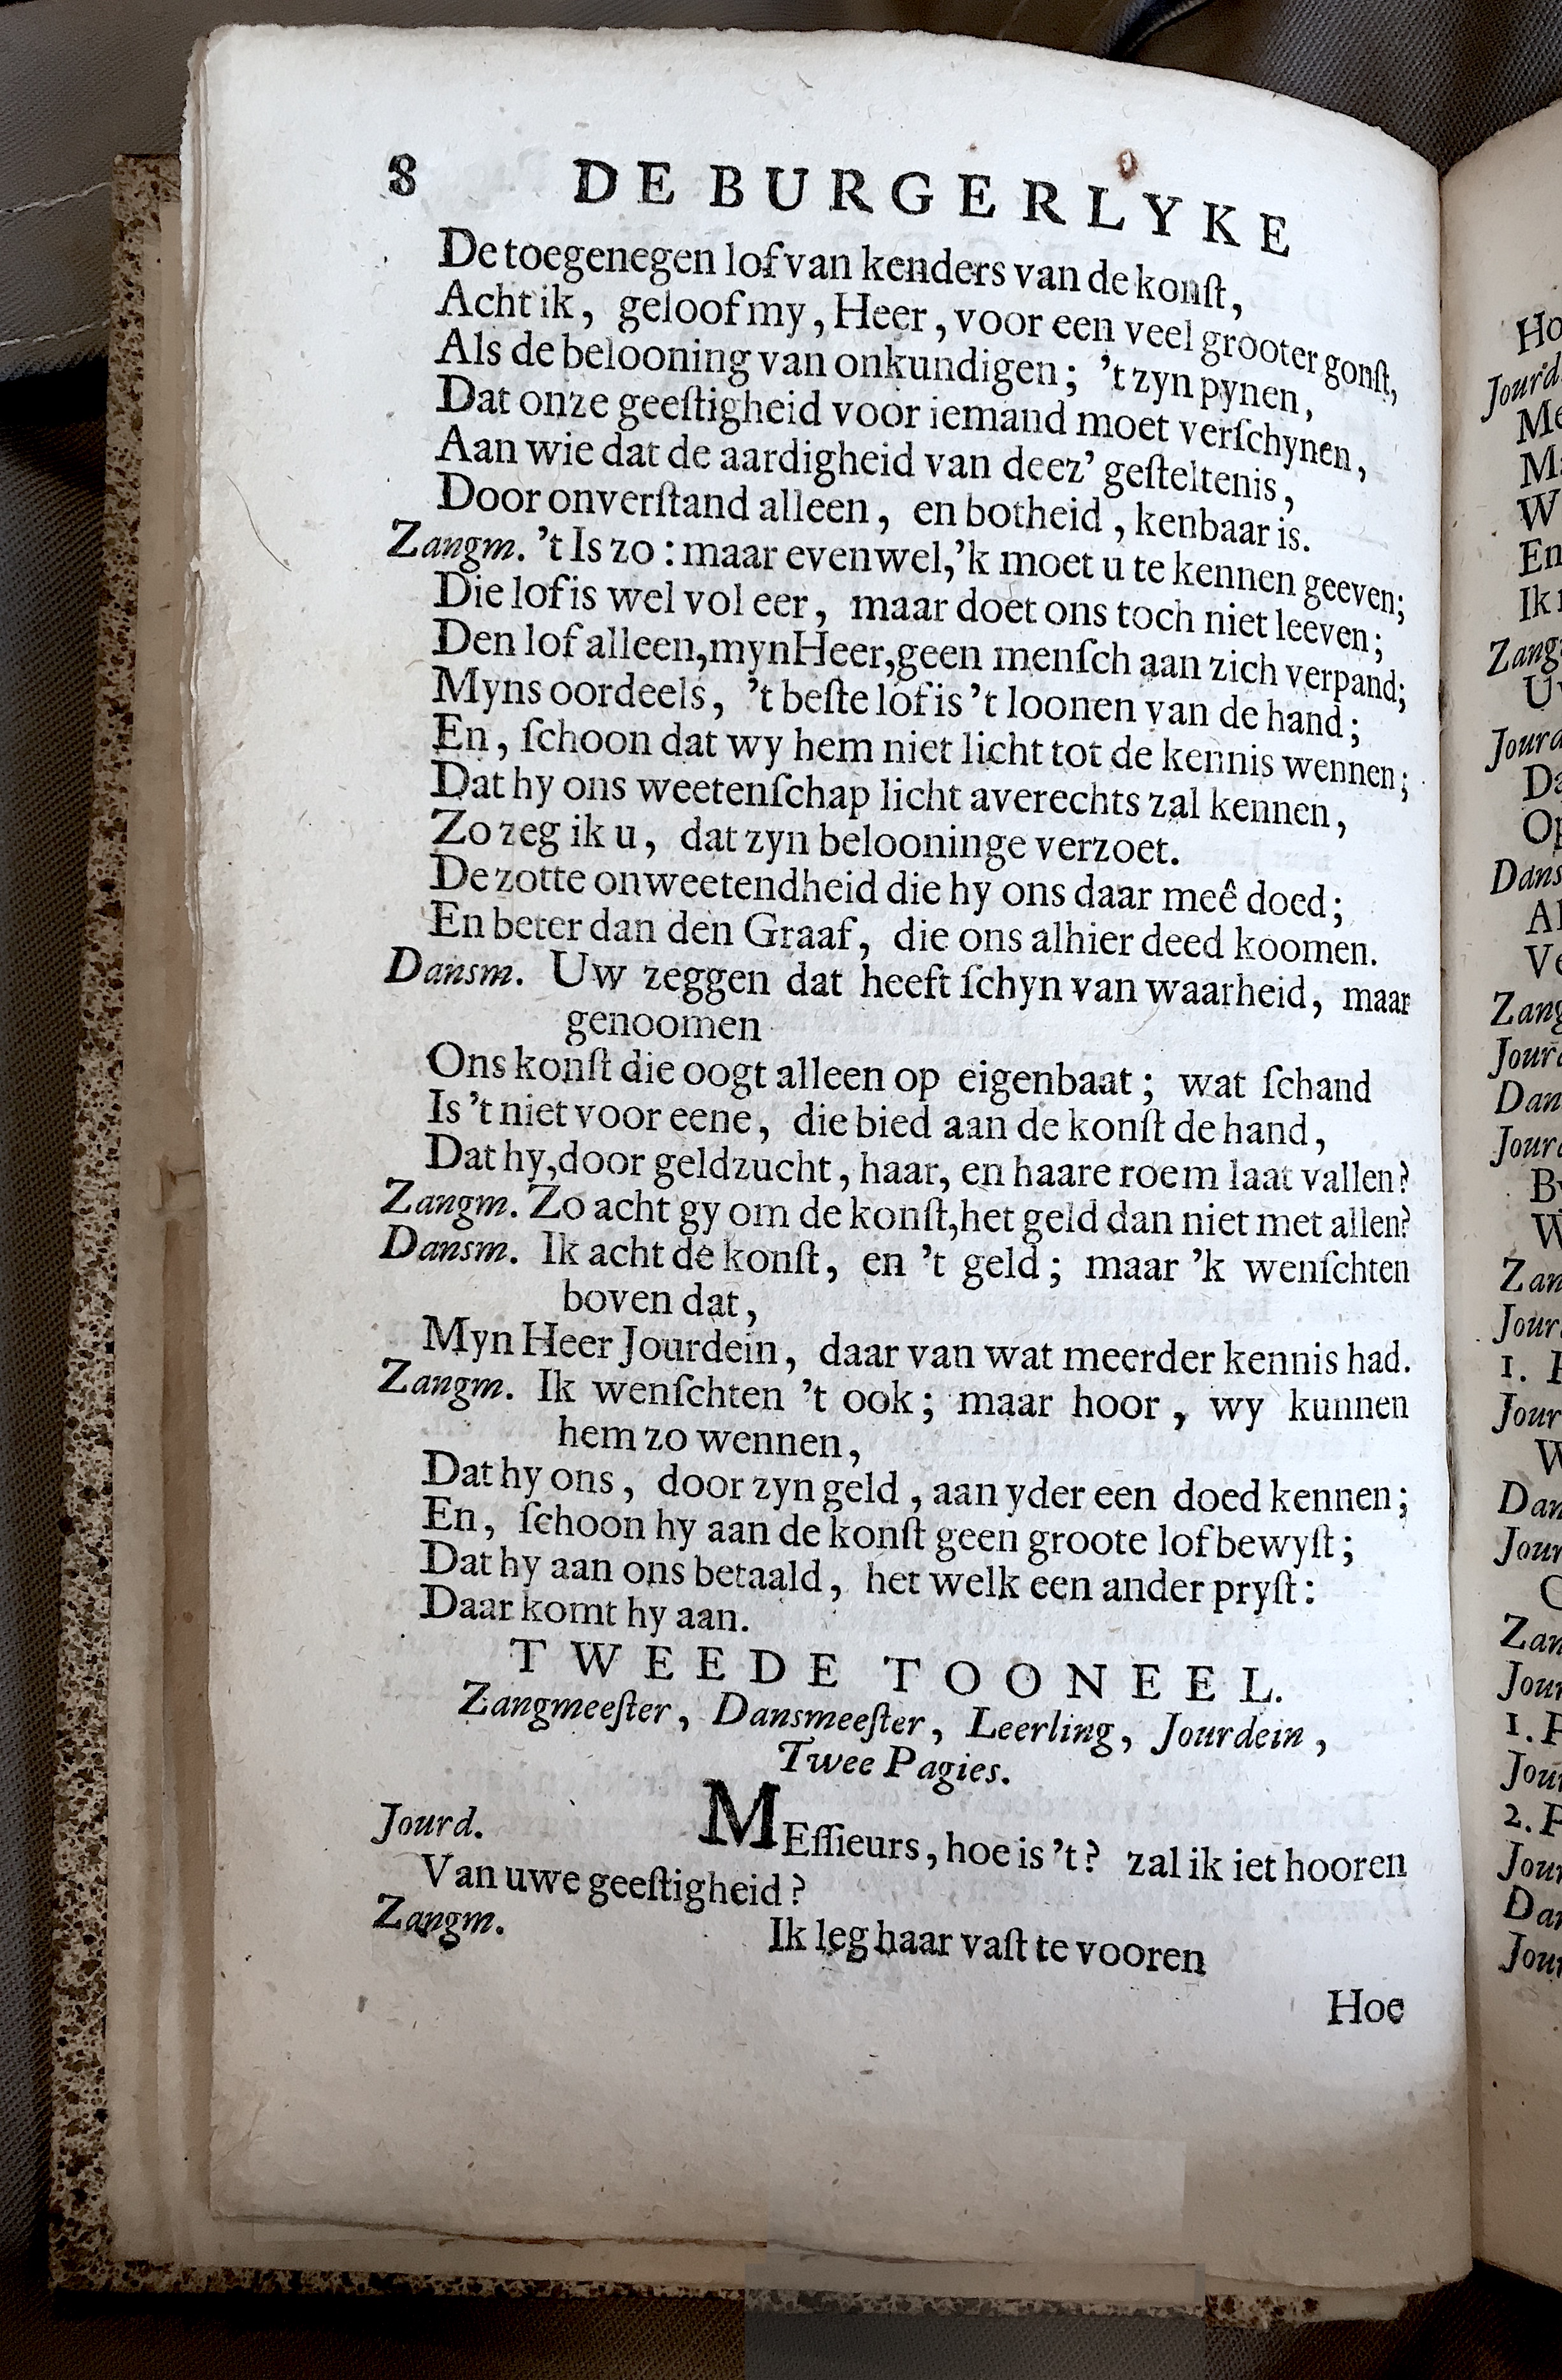 8 DE BURGERLYKE
De toegenegen lof van kenders van de konſt,
Acht ik, geloof my, Heer, voor een veel grooter gonſt,
Als de belooning van onkundigen; 't zyn pynen,
Dat onze geeſtigheid voor iemand moet verſchynen,
Aan wie dat de aardigheid van deez' geſteltenis,
Door onverſtand alleen, en botheid, kenbaar is.
Zangm. 't Is zo: maar evenwel, 'k moet u te kennen geeven;
Die lof is wel vol eer, maar doet ons toch niet leeven;
Den lof alleen, myn Heer, geen menſch aan zich verpand;
Myns oordeels, 't beſte lof is 't loonen van de hand;
En, ſchoon dat wy hem niet licht tot de kennis wennen;
Dat hy ons weetenſchap licht averechts zal kennen,
Zo zeg ik u, dat zyn belooninge verzoet.
De zotte onweetendheid die hy ons daar meê doed;
En beter dan den Graaf, die ons alhier deed koomen.
Dansm. Uw zeggen dat heeft ſchyn van waarheid, maar
genoomen
Ons konſt die oogt alleen op eigenbaat; wat ſchand
Is 't niet voor eene, die bied aan de konſt de hand,
Dat hy, door geldzucht, haar, en haare roem laat vallen?
Zangm. Zo acht gy om de konſt, het geld dan niet met allen?
Dansm. Ik acht de konſt, en 't geld; maar 'k wenſchten
boven dat,
Myn Heer Jourdein, daar van wat meerder kennis had.
Zangm. Ik wenſchten 't ook; maar hoor, wy kunnen
hem zo wennen,
Dat hy ons, door zyn geld, aan yder een doed kennen;
En, ſchoon hy aan de konſt geen groote lof bewyſt;
Dat hy aan ons betaald, het welk een ander pryſt:
Daar komt hy aan.
TWEEDE TOONEEL.
Zangmeeſter, Dansmeeſter, Leerling, Jourdein,
Twee Pagies.
Jourd. MEſſieurs, hoe is 't? zal ik iet hooren
Van uwe geeſtigheid?
Zangm. Ik leg haar vaſt te vooren
Hoe